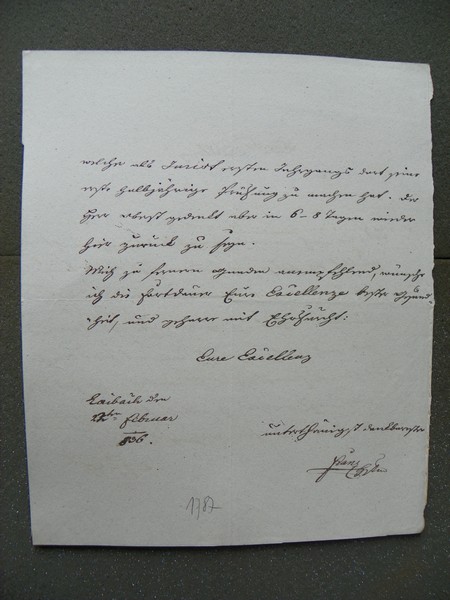 welcher als Jurist ersten Jahrgangs dort seine
erste halbjährige Prüfung zu machen hat. Der
Herr obest gedenkt aber in 6-8 Tagen wieder
hier zurück zu seyn.
Mich zu fernern Gnaden anempfehlend, wünsche
ich die Fortdauer Eure Excellenze bester Gesund
heit, und geharre mit Ehrfurcht:
Eure Excellenz
Laibach den
Februar
836.
unterthänigst dankbarster
Franz
1787